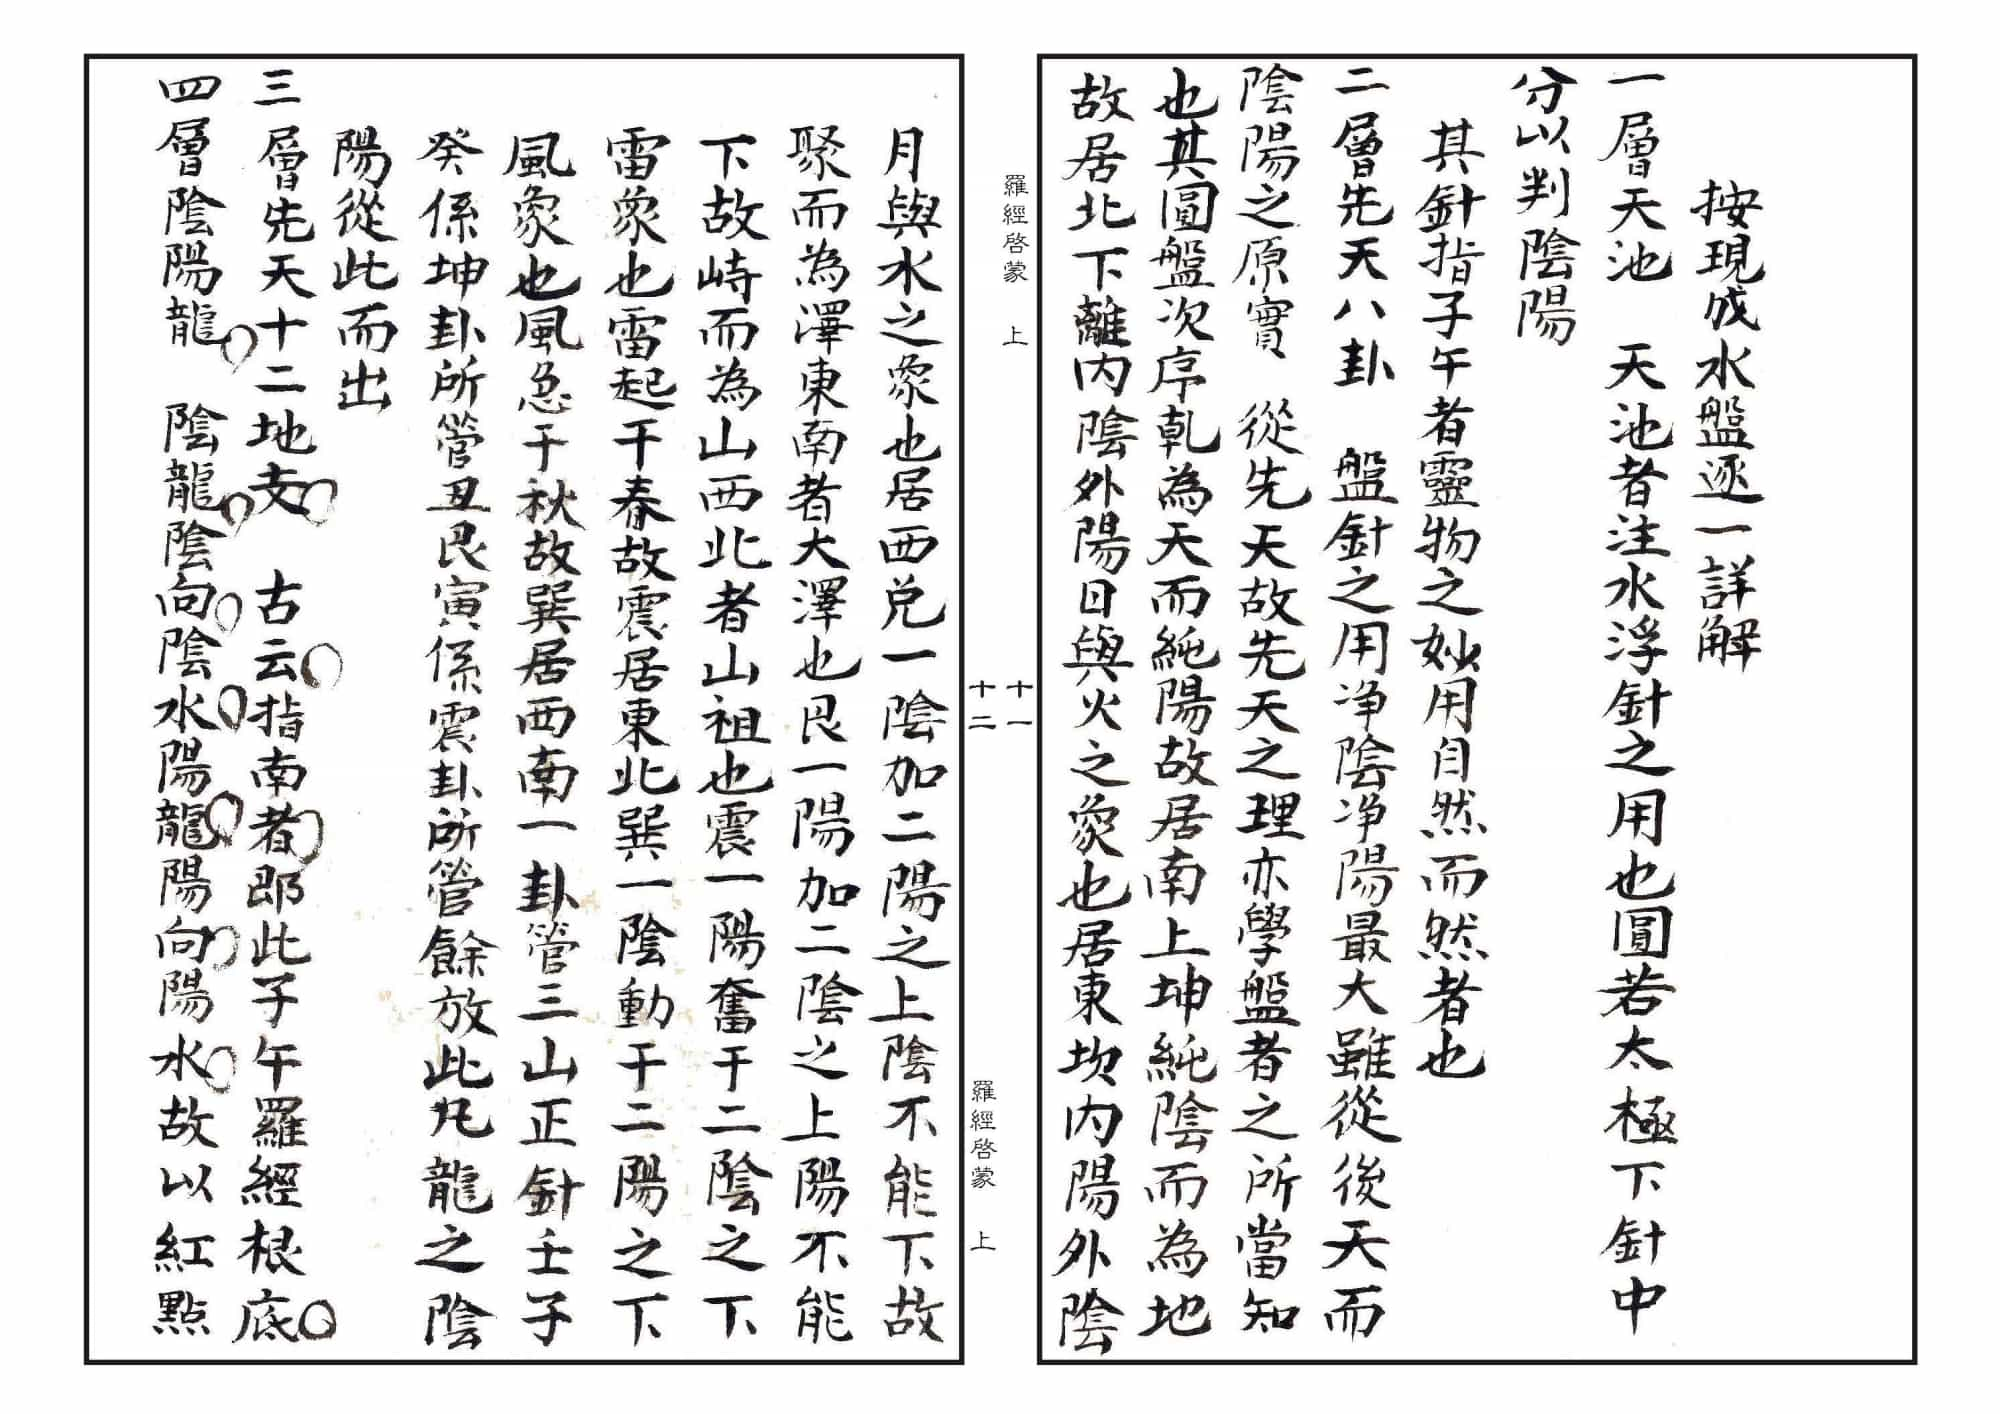 按現成水盤逐一詳解
一層天池　天池者注水浮針之用也圓若太極下針中
分以判陰陽
其針指子午者靈物之妙用自然而然者也
二層先天八卦　盤針之用净陰净陽最大雖從後天而
陰陽之原實　從先天故先天之理亦學盤者之所當知
也其圓盤次序乹為天而純陽故居南上坤純陰而為地
故居北下離內陰外陽日與火之象也居東坎內陽外陰
羅經啓蒙　上
十一
月與水之象也居西兌一陰加二陽之上陰不能下故
聚而為澤東南者大澤也艮一陽加二陰之上陽不能
下故峙而為山西北者山祖也震一陽奮于二陰之下
雷象也雷起干春故震居東北巽一陰動于二陽之下
風象也風急于秋故巽居西南一卦管三山正針壬子
癸係坤卦所管丑艮寅係震卦所管餘放此凡龍之陰
陽從此而出
三層先天十二地支　古云指南者即此子午羅經根底
四層陰陽龍　陰龍陰向陰水陽龍陽向陽水故以紅點
十二
羅經啓蒙　上